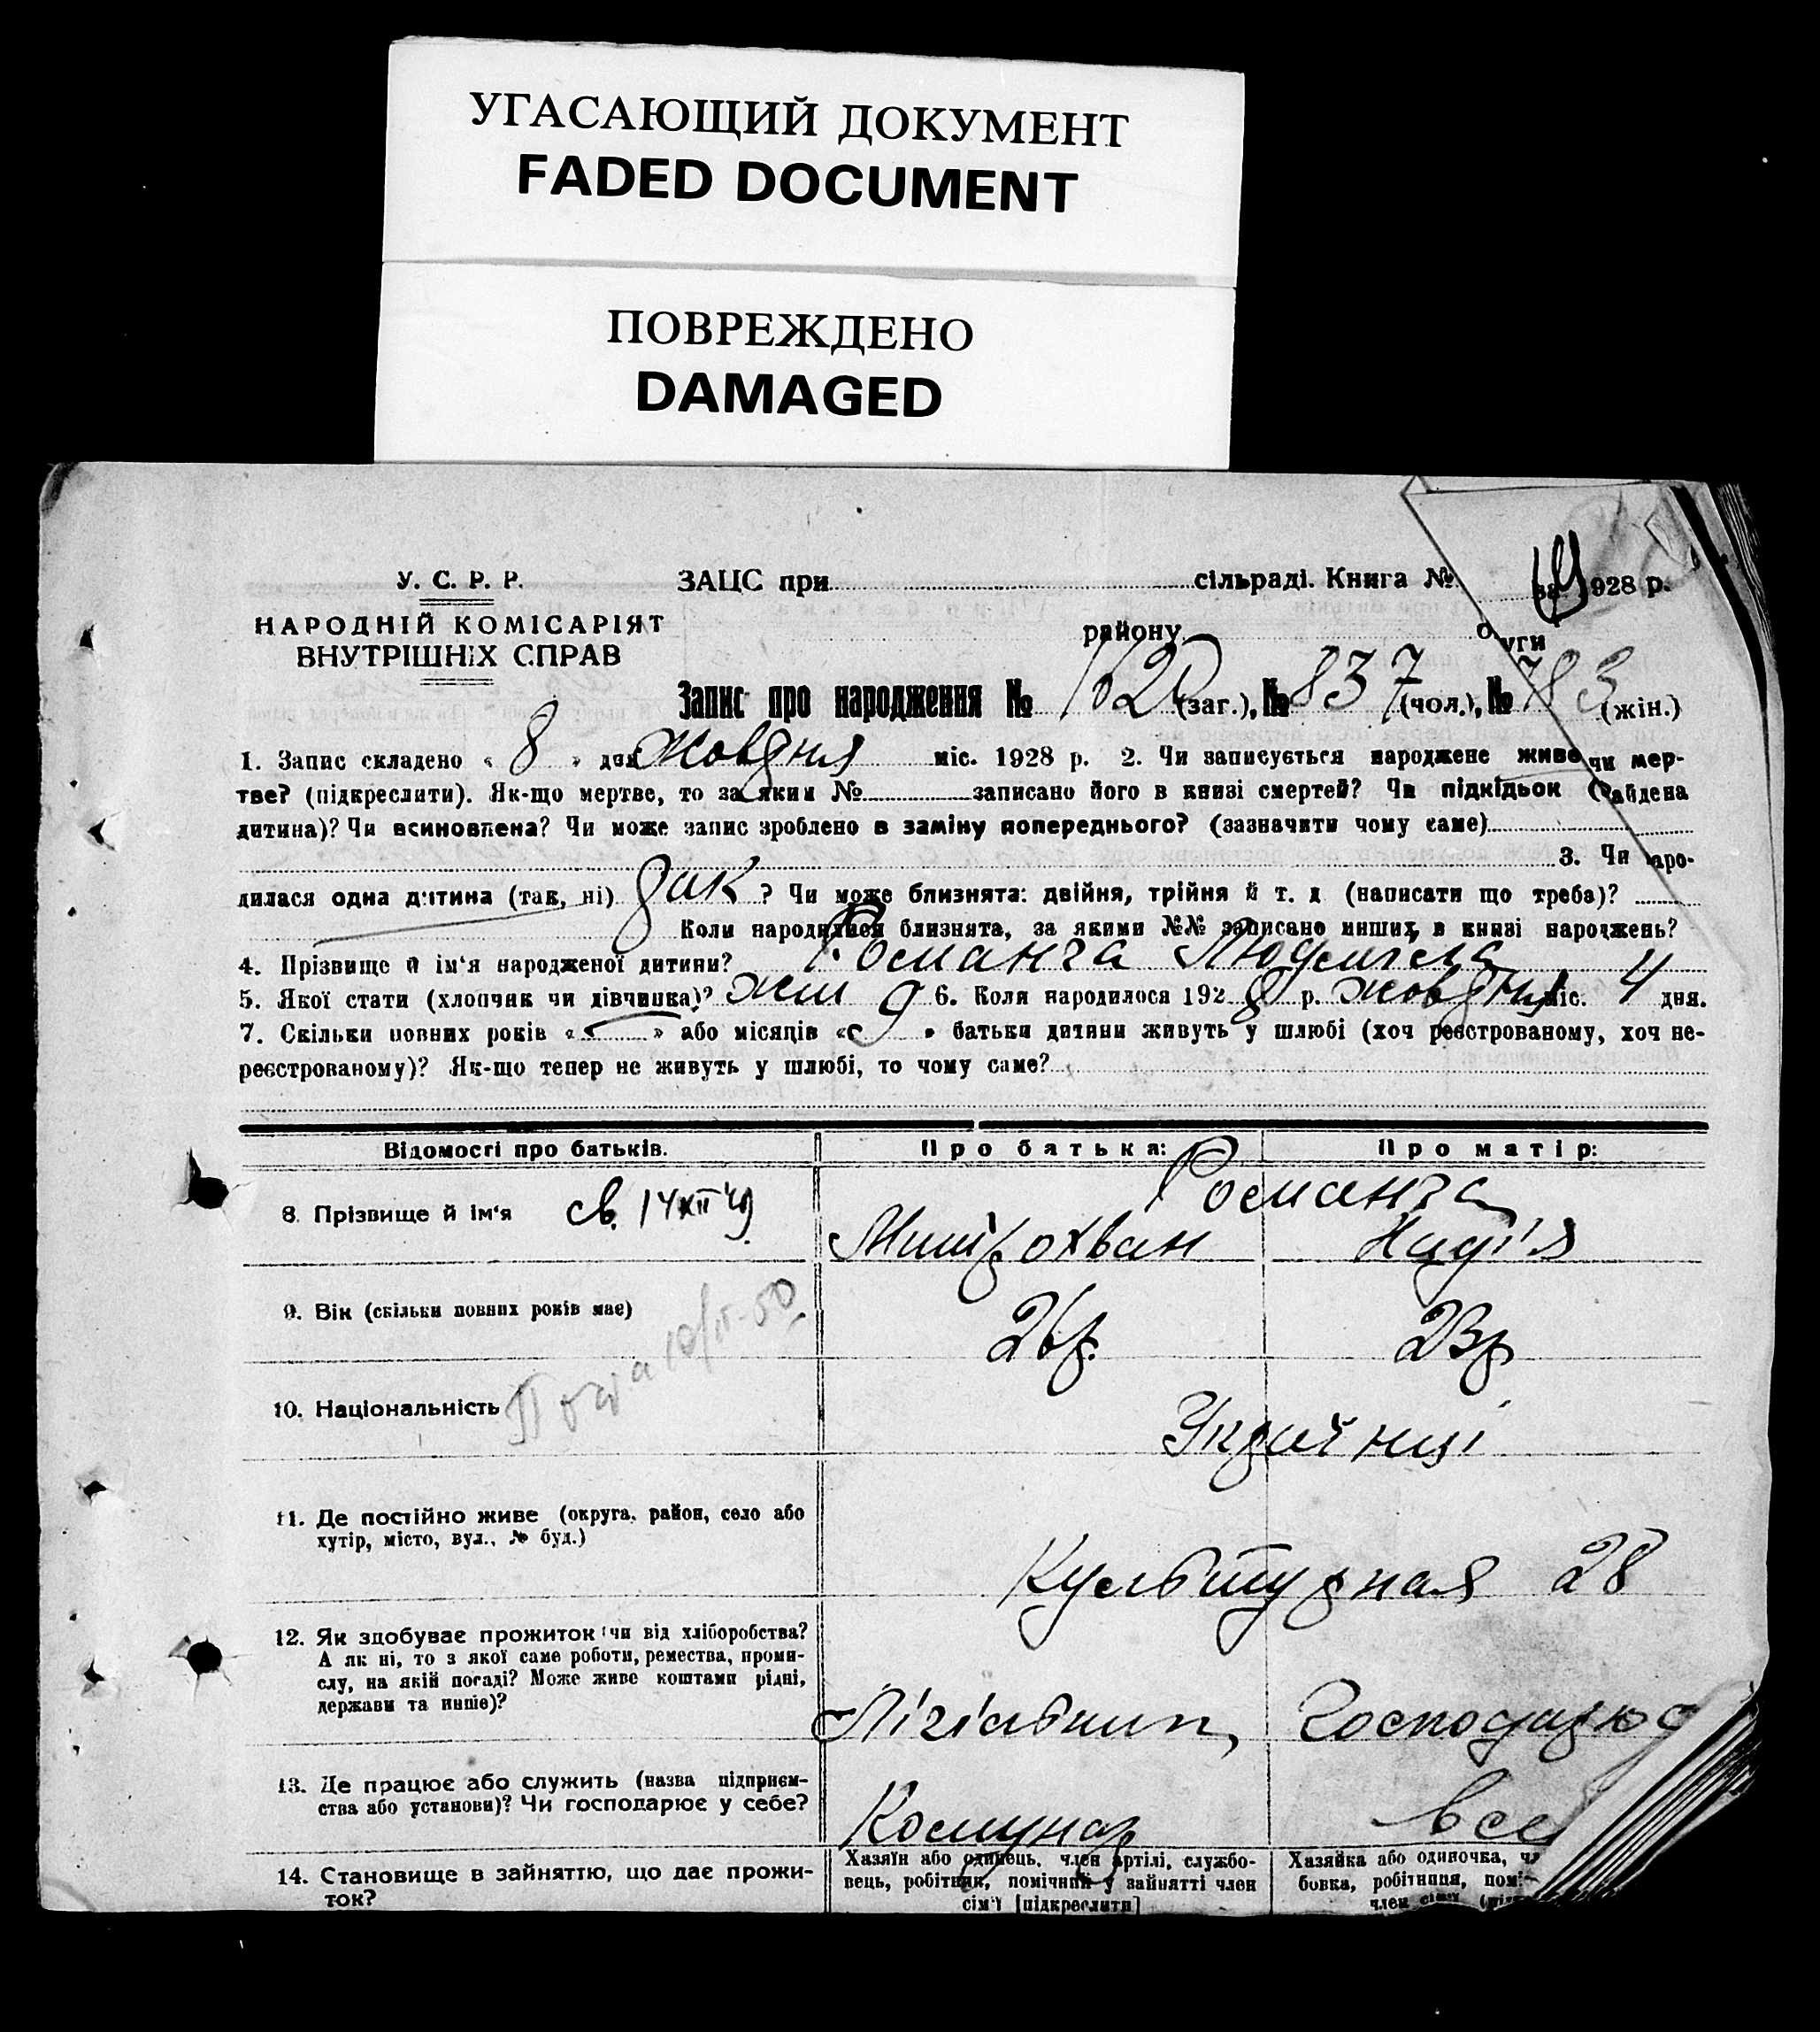 УГАСАЮЩИЙ ДОКУМЕНТ
FADED DOCUMENT
ПОВРЕЖДЕНО
DAMAGED
У. С. Р. Р.
НАРОДНІЙ КОМІСАРІЯТ
ВНУТРІШНІХ СПРАВ
ЗАЦС при сільраді. Книга № за 1928 р.
району
Запис про народження № 1620 (заг.), № 837 (чол.), № 783 (жін.)
1. Запис складено « 8 » дня жовтня міс. 1928 р. 2. Чи записується народжене живе чи мер-
тве? (підкреслити). Як-що мертве, то за яким № записано його в книзі смертей? Чи підкідьок (найдена
дитина)? Чи всиновлена? Чи може запис зроблено в заміну попереднього? (зазначити чому саме)
3. Чи наро-
дилася одна дитина (так, ні) так ? Чи може близнята: двійня, трійня й т. д (написати що треба)?
Коли народилися близнята, за якими №№ записано инших в книзі нароҗень?
4. Прізвище й ім'я народженої дитини? Романча Людмила
5. Якої стати (хлопчик чи дівчинка)? жін 6. Коли народилося 1928 р. жовтня міс. 4 дня.
7. Скільки повних років « » або місяців « 9 » батьки дитини живуть у шлюбі (хоч реєстрованому, хоч не-
реєстрованому)? Як-що тепер не живуть у шлюбі, то чому саме?
Відомості про батьків. Про батька: Про матір:
Романча
8. Прізвище й ім'я св. 14 XII 49 Митрохван Надія
9. Вік (скільки повних років має) 26р. 23р
10. Національність Українці
11. Де постійно живе (округа, район, село або
хутір, місто, вул., № буд.)
Культурная 28
12. Як здобуває прожиток: чи від хліборобства?
А як ні, то з якої саме роботи, ремества, проми-
слу, на якій посаді? Може живе коштами рідні,
держави та инше)?
Господарює
13. Де працює або служить (назва підприєм-
ства або установи)? Чи господарює у себе?
Комунар
14. Становище в зайняттю, що дає прожи-
ток?
Хазяїн або одинець, член артілі, службо-
вець, робітник, помічний у зайнятті член
сім'ї [підкреслити]
Хазяйка або одиночка,
бовка, робітниця,
член сім'ї